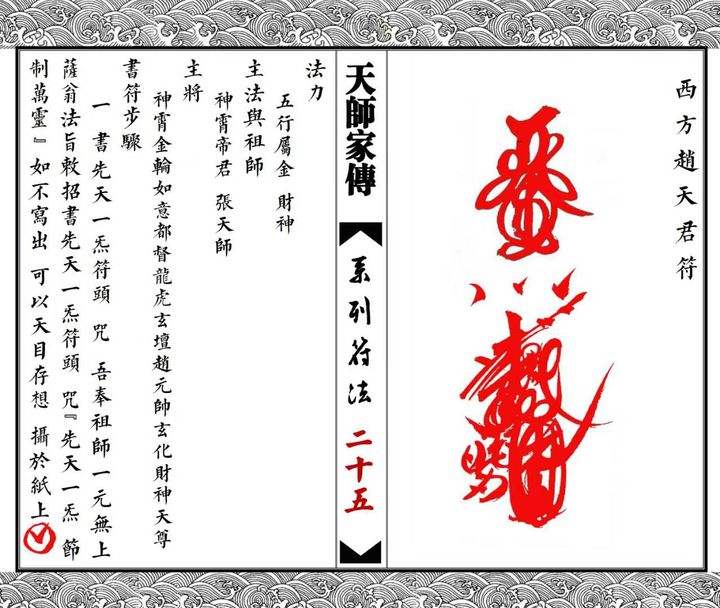 西方趙天君符
天師家傳
系列符法
二十五
法力
五行屬金 財神
主法與祖師
神霄帝君 張天師
主將
神霄金輪如意都督龍虎玄壇趙元帥玄化財神天尊
書符步驟
一 書先天一炁符頭 咒 吾奉祖師一元無上
薩翁法旨敕招書先天一炁符頭 咒『先天一炁 節
制萬靈』如不寫出 可以天目存想 攝於紙上